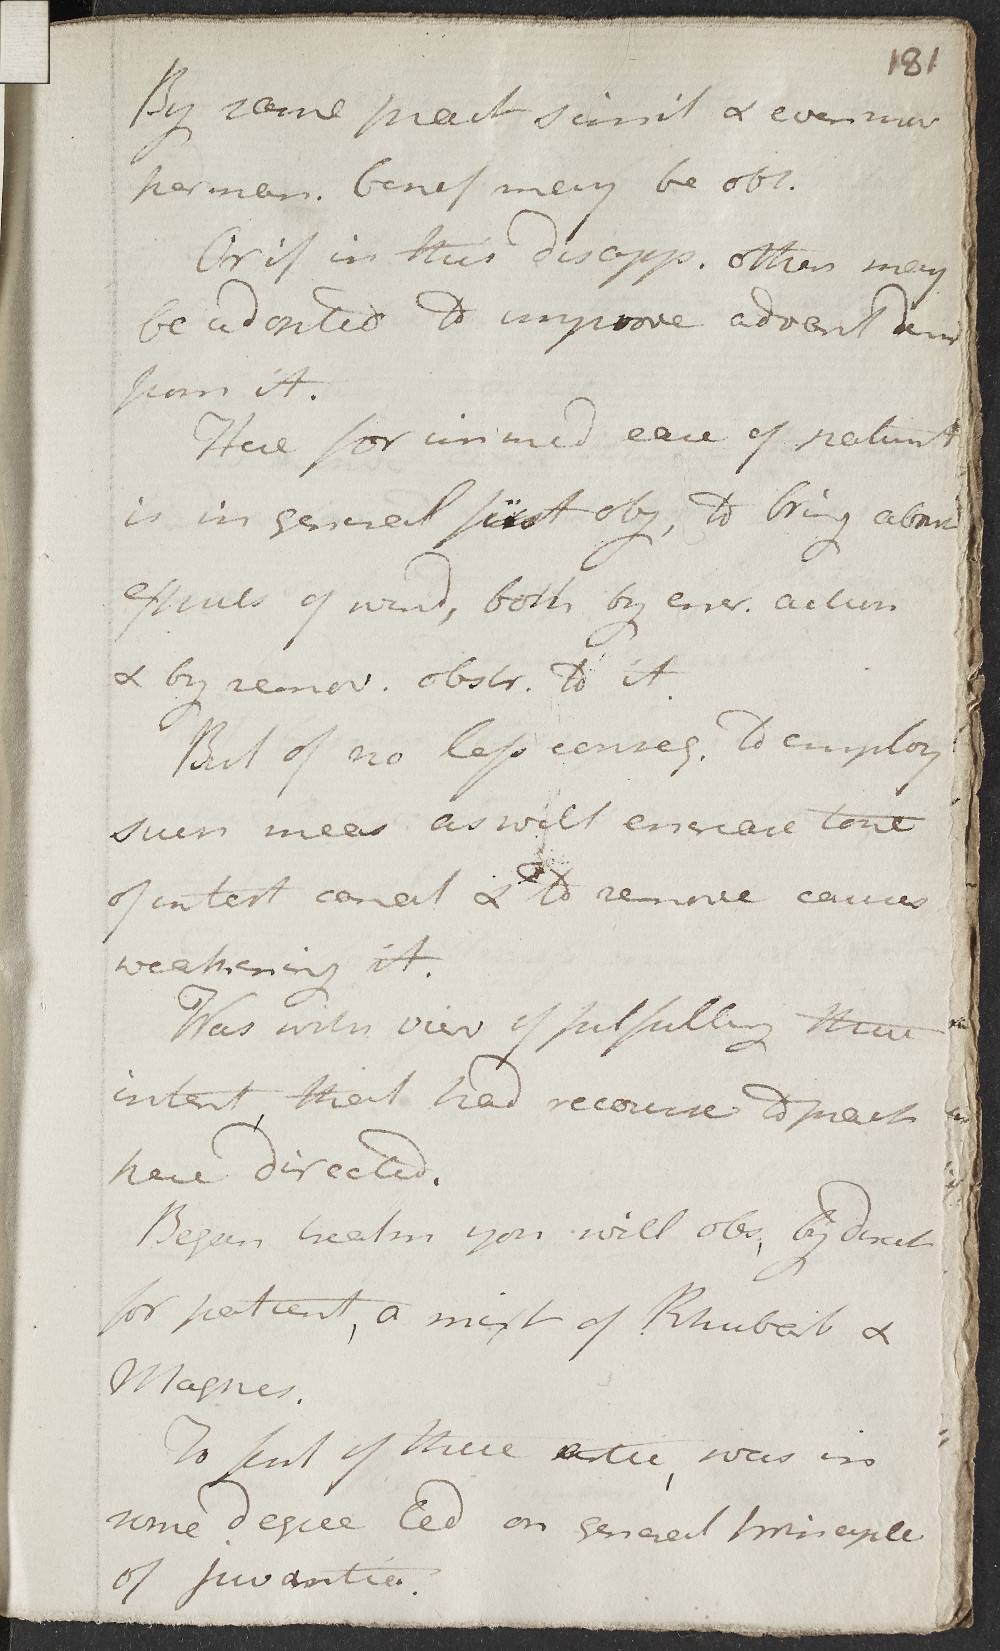 181
By same pract simil & even mor
perman. benef may be obt.
Or if in this disapp. others may
be adopted to improve advant deriv
from it.
Here for immed ease of patient
is in general first obj, to bring about
expuls of wind, both by encr. action
& by remov. obstr. to it.
But of no less conseq. to employ
such meas as will encrease tone
of intest canal & to remove causes
weakening it.
Was with view of fulfilling these
intent, that had recourse to pract
here directed.
Began healm you will obs, by direct
for patient, a mixt of Rhubarb &
Magnes.
To first of these artic, was in
some degree led on general principle
of juvantia.